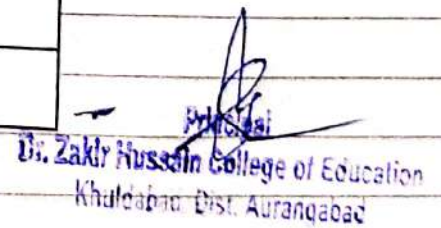 Principal
Dr. Zakir Hussain College of Education
Khuldabad Dist. Aurangabad